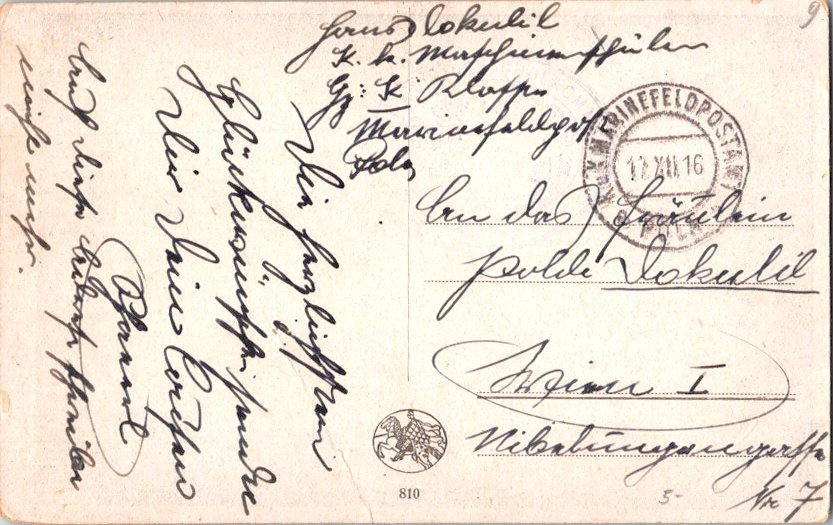 Hans Dokulil
K. k. Maschinenschüler
Gg: K Klasse
Marinefeldpost
Pola
K.u.K. MARINEFELDPOSTAMT
17 XII 16
POLA
An das Fräulein
Polde Dokulil
Wien I
Nibelungengasse
Nr 7
Die herzlichsten
Glückwünsche sendet
Dir Dein
Auf diese Adresse schreiben
nicht mehr.
810
9
5-